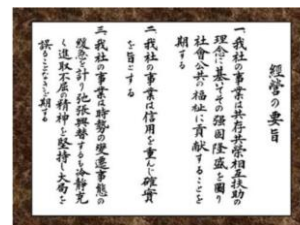 經營の要旨
一、我社の事業は共存共榮相互扶助の
理念に基いてその强固隆盛を圖り
社會公共の福祉に貢献することを
期する
二、我社の事業は信用を重んじ確實
を旨とする
三、我社の事業は時勢の變遷事態の
緩急を計り弛張興替するも冷静克
く進取不屈の精神を堅持し大局を
誤ることなきを期する